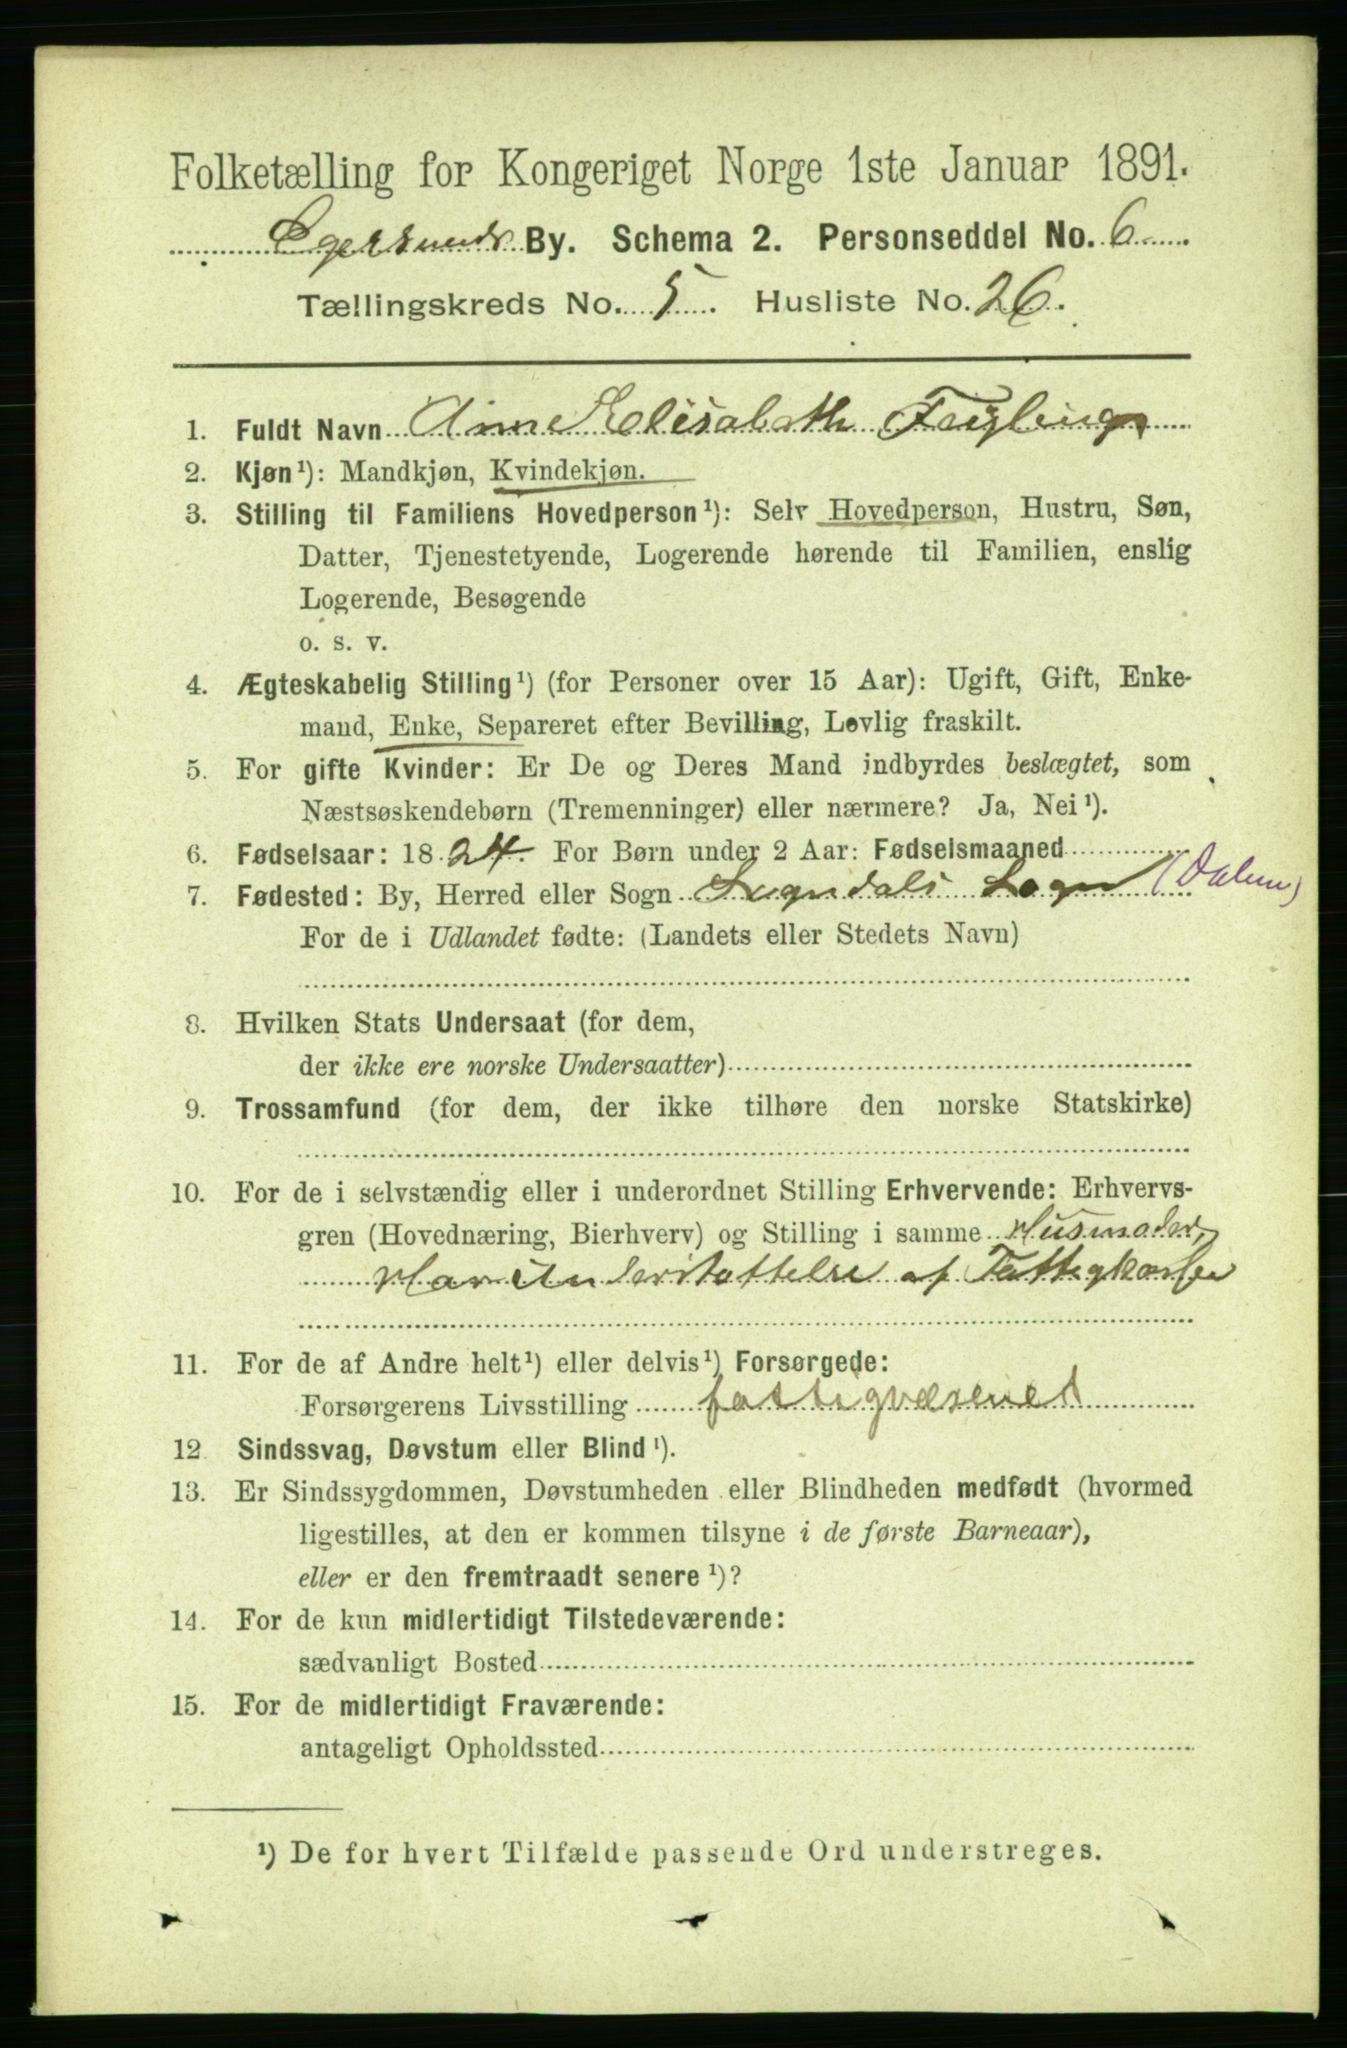 Folketælling for Kongeriget Norge 1ste Januar 1891.
Egersunds By. Schema 2. Personseddel No. 6
Tællingskreds No. 5. Husliste No. 26.
1. Fuldt Navn Anne Elisabeth
2. Kjøn¹): Mandkjøn, Kvindekjøn.
3. Stilling til Familiens Hovedperson¹): Selv Hovedperson, Hustru, Søn,
Datter, Tjenestetyende, Logerende hørende til Familien, enslig
Logerende, Besøgende
o. s. v.
4. Ægteskabelig Stilling¹) (for Personer over 15 Aar): Ugift, Gift, Enke-
mand, Enke, Separeret efter Bevilling, Lovlig fraskilt.
5. For gifte Kvinder: Er De og Deres Mand indbyrdes beslægtet, som
Næstsøskendebørn (Tremenninger) eller nærmere? Ja, Nei¹).
6. Fødselsaar: 1824. For Børn under 2 Aar: Fødselsmaaned
7. Fødested: By, Herred eller Sogn Sogndals Sogn (Dalene)
For de i Udlandet fødte: (Landets eller Stedets Navn)
8. Hvilken Stats Undersaat (for dem,
der ikke ere norske Undersaatter)
9. Trossamfund (for dem, der ikke tilhøre den norske Statskirke)
10. For de i selvstændig eller i underordnet Stilling Erhvervende: Erhvervs-
gren (Hovednæring, Bierhverv) og Stilling i samme Husmoder,
Har Understøttelse af Fattigkassen
11. For de af Andre helt¹) eller delvis¹) Forsørgede:
Forsørgerens Livsstilling fattigvæsenet
12 Sindssvag, Døvstum eller Blind¹).
13. Er Sindssygdommen, Døvstumheden eller Blindheden medfødt (hvormed
ligestilles, at den er kommen tilsyne i de første Barneaar),
eller er den fremtraadt senere¹)?
14. For de kun midlertidigt Tilstedeværende:
sædvanligt Bosted
15. For de midlertidigt Fraværende:
antageligt Opholdssted
¹) De for hvert Tilfælde passende Ord understreges.